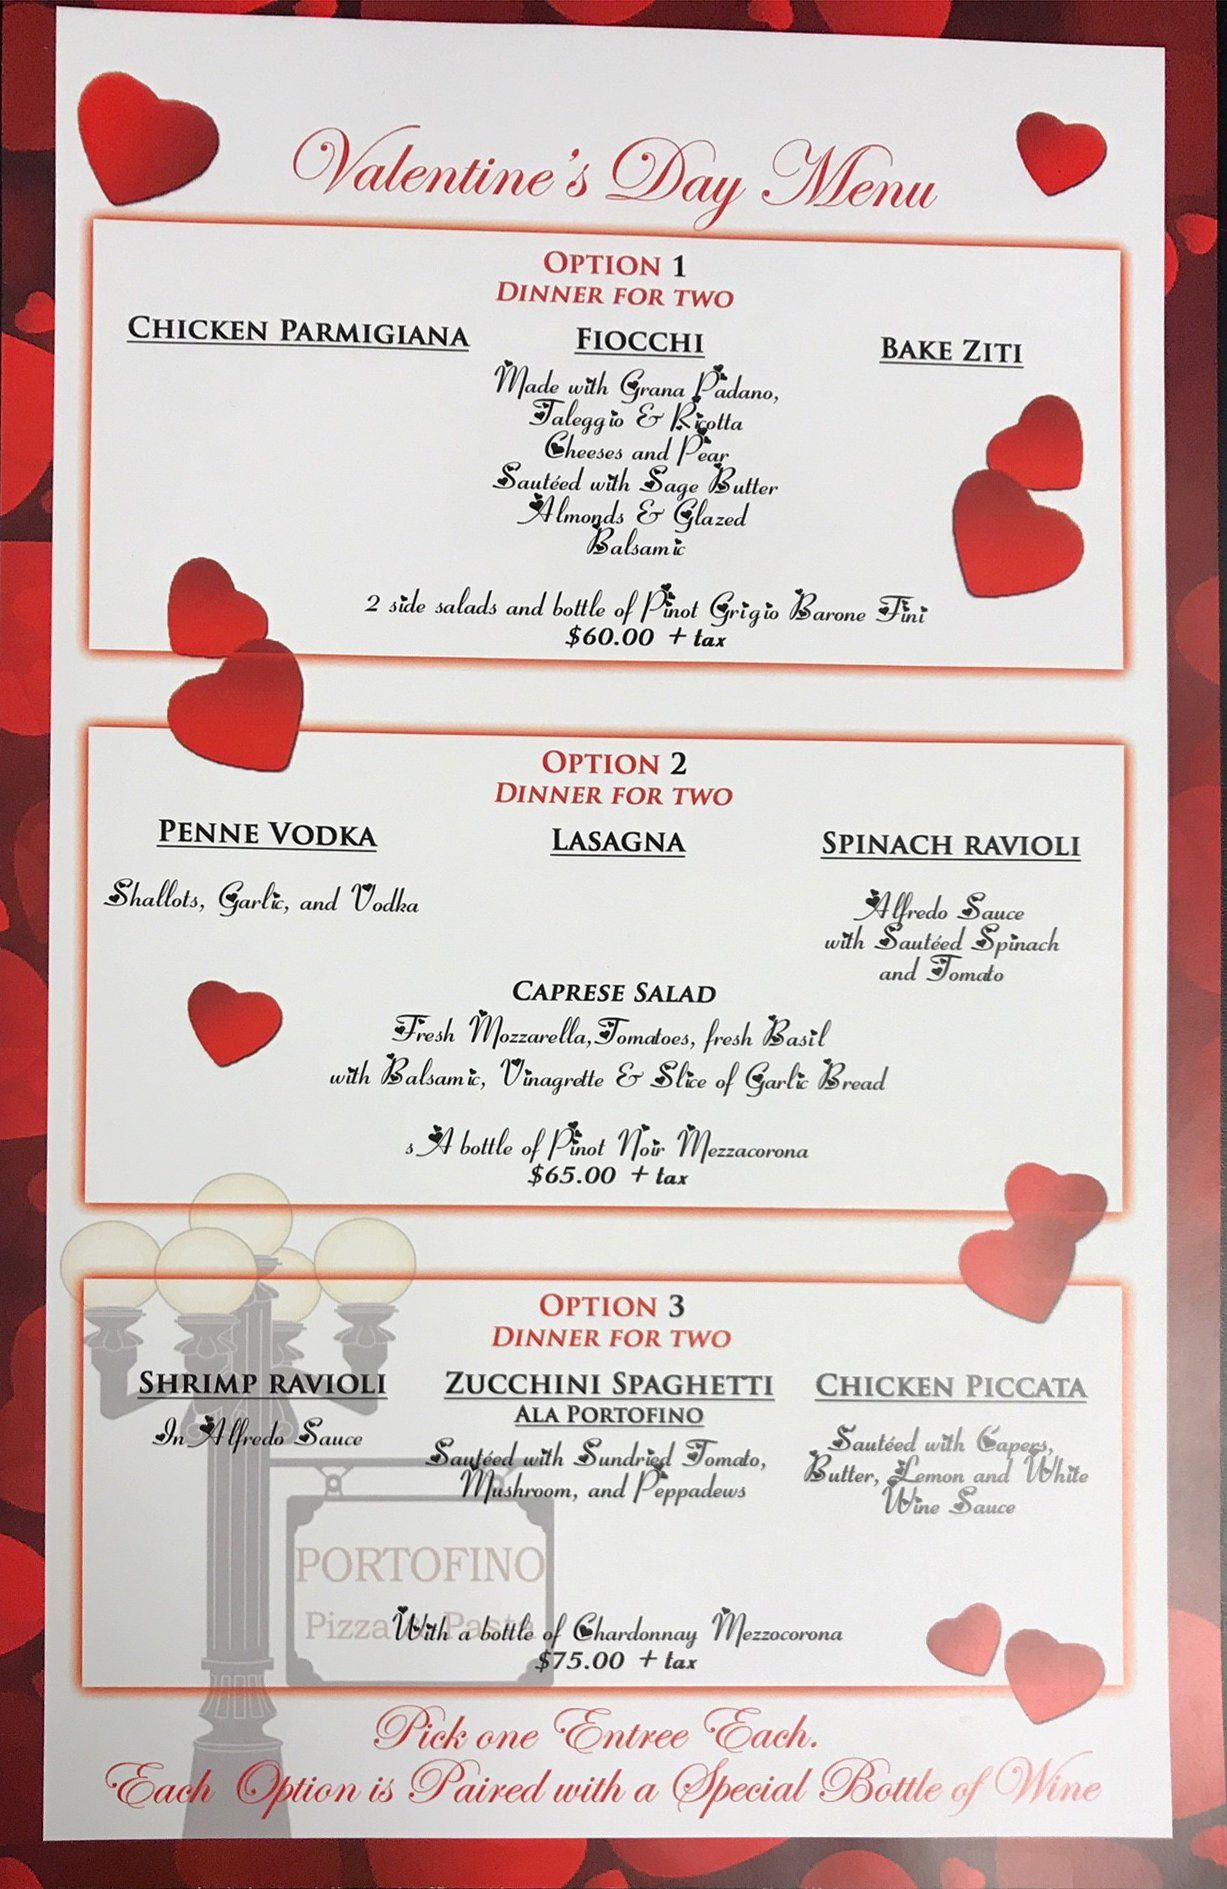 Valentine's Day Menu
OPTION 1
DINNER FOR TWO
CHICKEN PARMIGIANA
FIOCCHI
Made with Grana Padano,
Taleggio & Ricotta
Cheeses and Pear
Sautéed with Sage Butter
Almonds & Glazed
Balsamic
BAKE ZITI
2 side salads and bottle of Pinot Grigio Barone Fini
$60.00 + tax
OPTION 2
DINNER FOR TWO
PENNE VODKA
Shallots, Garlic, and Vodka
LASAGNA
SPINACH RAVIOLI
Alfredo Sauce
with Sautéed Spinach
and Tomato
CAPRESE SALAD
Fresh Mozzarella,Tomatoes, fresh Basil
with Balsamic, Vinagrette & Slice of Garlic Bread
s A bottle of Pinot Noir Mezzacorona
$65.00 + tax
OPTION 3
DINNER FOR TWO
SHRIMP RAVIOLI
In Alfredo Sauce
ZUCCHINI SPAGHETTI
ALA PORTOFINO
Sautéed with Sundried Tomato,
Mushroom, and Peppadews
CHICKEN PICCATA
Sautéed with Capers,
Butter, Lemon and White
Wine Sauce
PORTOFINO
Pizza & Pasta
With a bottle of Chardonnay Mezzocorona
$75.00 + tax
Pick one Entree Each.
Each Option is Paired with a Special Bottle of Wine